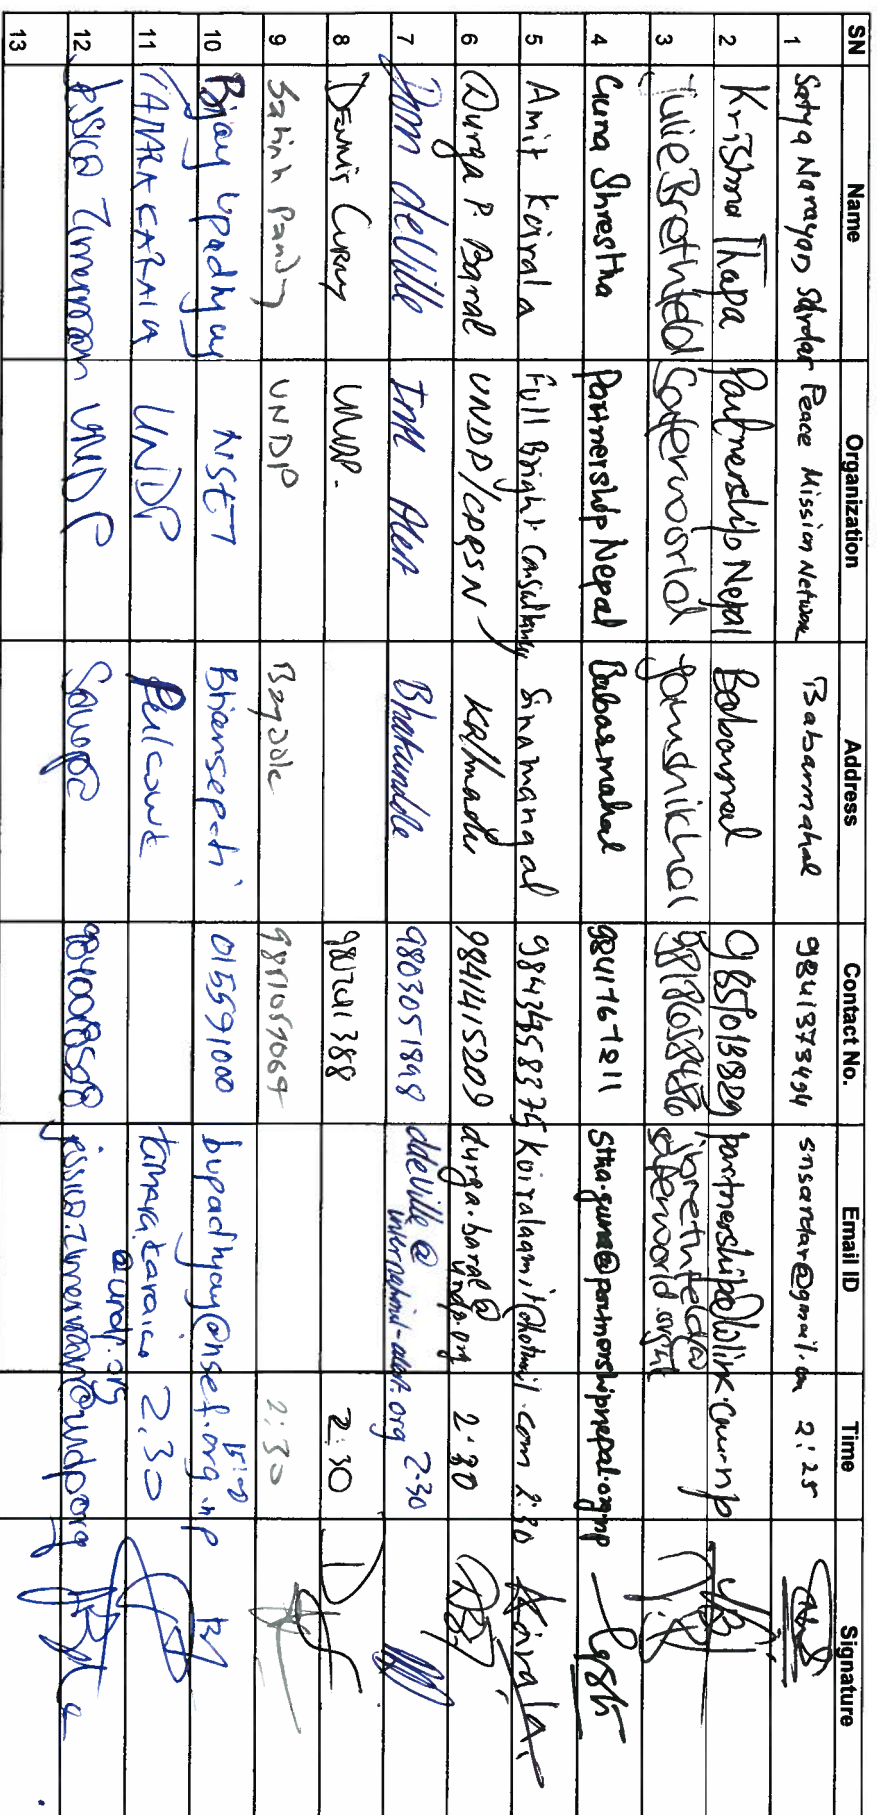 SN Name Organization Address Contact No. Email ID Time Signature
1 Satya Narayan Sardar Peace Mission Network Babarmahal 9841373494 snsardar@gmail.com 2:25
2 Krishna Thapa Partnership Nepal Babarmal partnership@wlink.com.np
3 Julie Brethfeld Saferworld 9818658486 jbrethfeld@
saferworld.org.uk
4 Guna Shrestha Partnership Nepal Babarmahal stha.guna@partnershipnepal.org.np
5 Amit Koirala Full Bright Consultancy Sinamangal koiralaamit@hotmail.com 2:30 Koirala
6 Durga P. Baral UNDP/CPRSN 9841415209 durga.baral@
undp.org 2:30
7 Dom deVille Int Alert Bhatundole 9803051848 ddeville@
international-alert.org 2-30
8 Dennis Curry UNDP. 2:30
9 UNDP 2:30
10 Bijay Upadhyay NSET Bhainsepati 015591000 bupadhyay@nset.org.np
11 TAMARA KARAIA UNDP Pulcowk tamara.karaia
@undp.org 2.30
12 Jessica Zimmerman UNDP jessica.zimmerman@undp.org
13